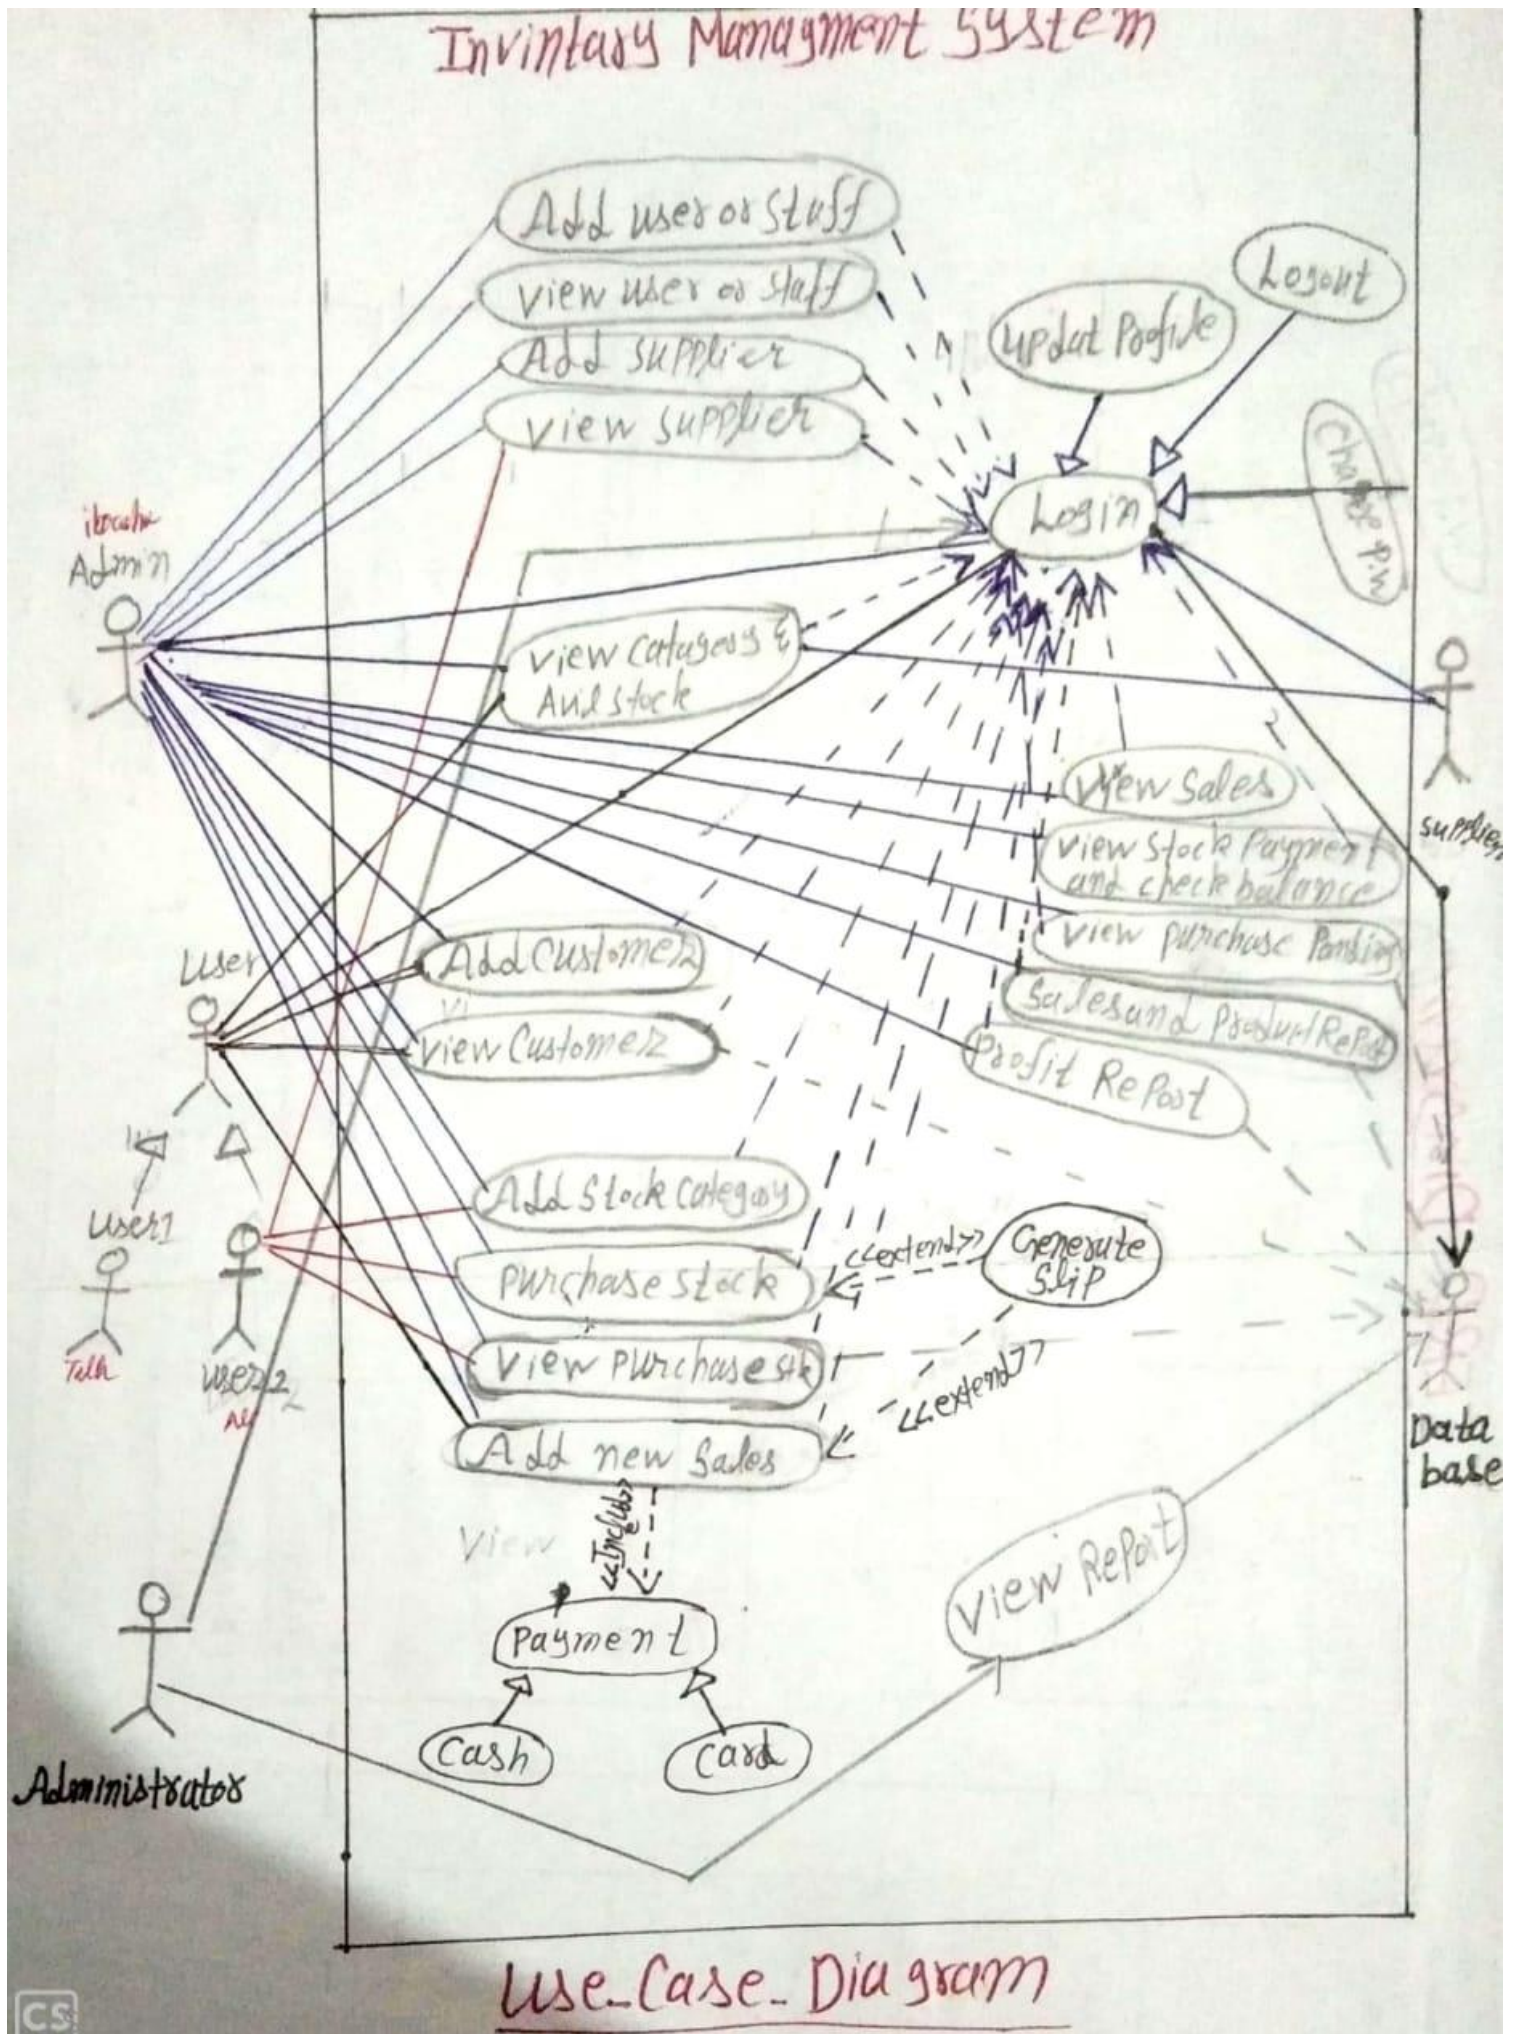 Invintary Managment System
Add user or Staff
view user or staff
Add supplier
view supplier
Updat Profile
Logout
Login
Change P.W
Admin
view Catagory &
Avilstock
View Sales
view stock Payment
and check balance
view purchase Panding
Sales and Product Report
Profit Report
supplier
User
Add Customer
view Customer
Add Stock Category
purchase stock
View purchase stk
Add new Sales
<<extend>>
Generate
Slip
<<extend>>
User1
Talh
user2
Ali
Data
base
View
<<Includ>>
Payment
View Report
Cash
Card
Administrator
Use_Case_Diagram
CS